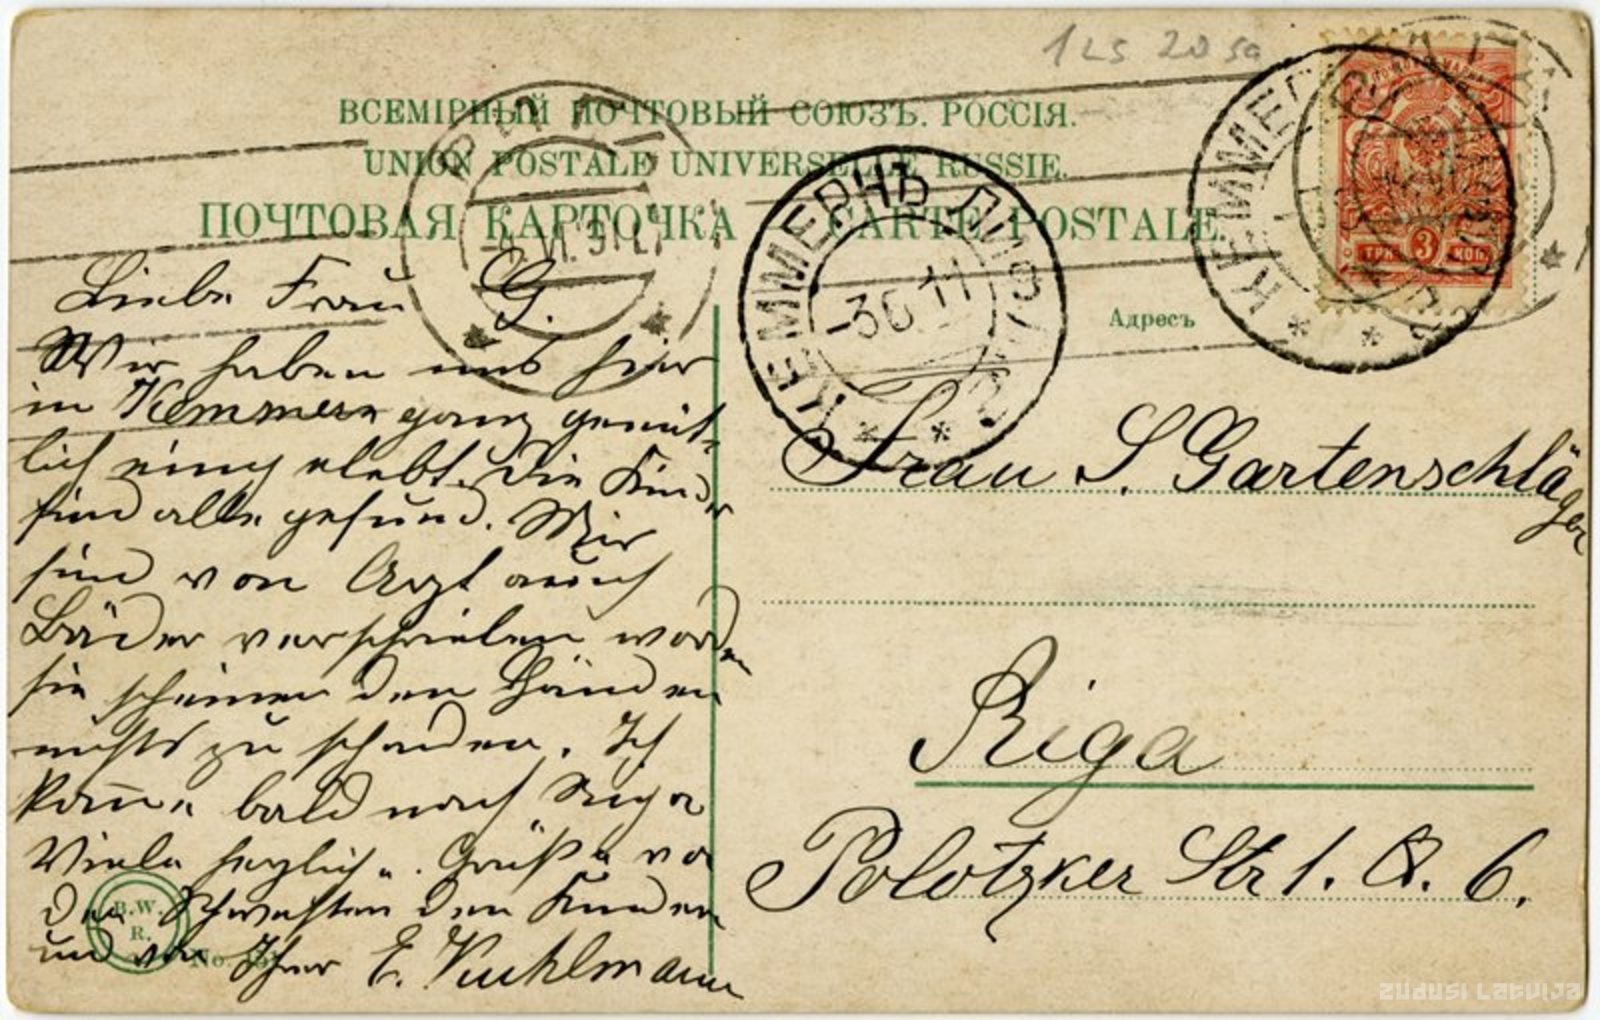 1 Ls 20 sa
ВСЕМІРНЫЙ ПОЧТОВЫЙ СОЮЗЪ. РОССІЯ.
UNION POSTALE UNIVERSELLE RUSSIE.
ПОЧТОВАЯ КАРТОЧКА CARTE POSTALE.
КЕММЕРНЪ ЛИФЛ.
-3 6 11
ТРИ 3 КОП.
Адресъ
Liebe Frau G.
Wir haben uns hier
in Kemmern ganz gemüt-
lich eingelebt. Die Kinder
sind alle gesund. Wir
sind vom Arzt auch
Bäder verschrieben worden
sie scheinen den Händen
nichts zu schaden. Ich
komme bald nach Riga
Viele herzlich. Grüße von
den Schwestern den Kindern
und von Ihrer E. Kuhlmann
Frau S. Gartenschläger
Riga
Polotzker Str 1. Q. 6.
B.W.
R.
No.
ZUDUSI LATVIJA